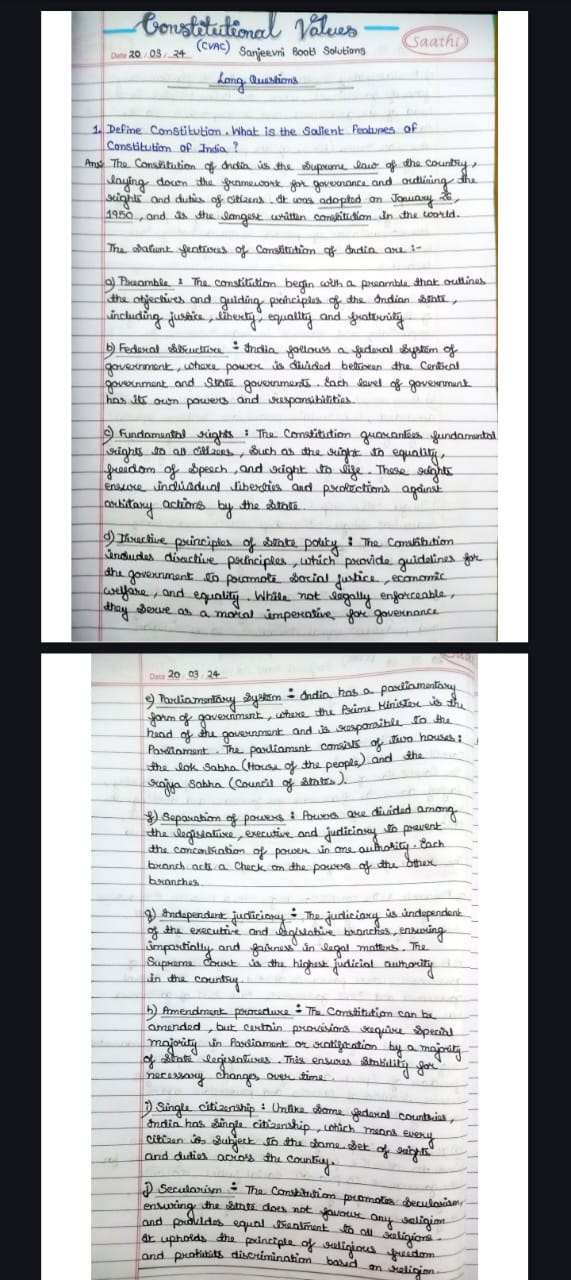 Constitutional Values
(CVAC)
Saathi
Date 20 / 03 / 24
Sanjeevni Booti Solutions
Long Questions
1. Define Constitution. What is the Salient Features of
Constitution of India ?
Ans The Constitution of India is the supreme law of the country,
laying down the framework for governance and outlining the
rights and duties of citizens. It was adopted on January 26,
1950, and is the longest written constitution in the world.
The salient features of Constitution of India are :-
a) Preamble : The constitution begin with a preamble that outlines
the objectives and guiding principles of the Indian State,
including justice, liberty, equality and fraternity.
b) Federal structure : India follows a federal system of
government, where power is divided between the Central
government and State governments. Each level of government
has its own powers and responsibilities.
c) Fundamental rights : The Constitution guarantees fundamental
rights to all citizens, such as the right to equality,
freedom of speech, and right to life. These rights
ensure individual liberties and protections against
arbitary actions by the state.
d) Directive principles of State policy : The Constitution
includes directive principles, which provide guidelines for
the government to promote social justice, economic
welfare, and equality. While not legally enforceable,
they serve as a moral imperative for governance
Date 20 / 03 / 24
e) Parliamentary System : India has a parliamentary
form of government, where the Prime Minister is the
head of the government and is responsible to the
Parliament. The parliament consists of two houses :
the lok Sabha (House of the people) and the
rajya Sabha (Council of states).
f) Separation of powers : Powers are divided among
the legislature, executive and judiciary to prevent
the concentration of power in one authority. Each
branch acts a check on the powers of the other
branches.
g) Independent judiciary : The judiciary is independent
of the executive and legislative branches, ensuring
impartially and fairness in legal matters. The
Supreme Court is the highest judicial authority
in the country.
h) Amendment procedure : The Constitution can be
amended, but certain provisions require special
majority in Parliament or ratification by a majority
of State legislatures. This ensures stability for
necessary changes over time.
i) Single citizenship : Unlike some federal countries,
India has single citizenship, which means every
citizen is subject to the same set of rights
and duties across the country.
j) Secularism : The Constitution promotes secularism,
ensuring the state does not favour any religion
and provides equal treatment to all religions.
It upholds the principle of religious freedom
and prohibits discrimination based on religion.